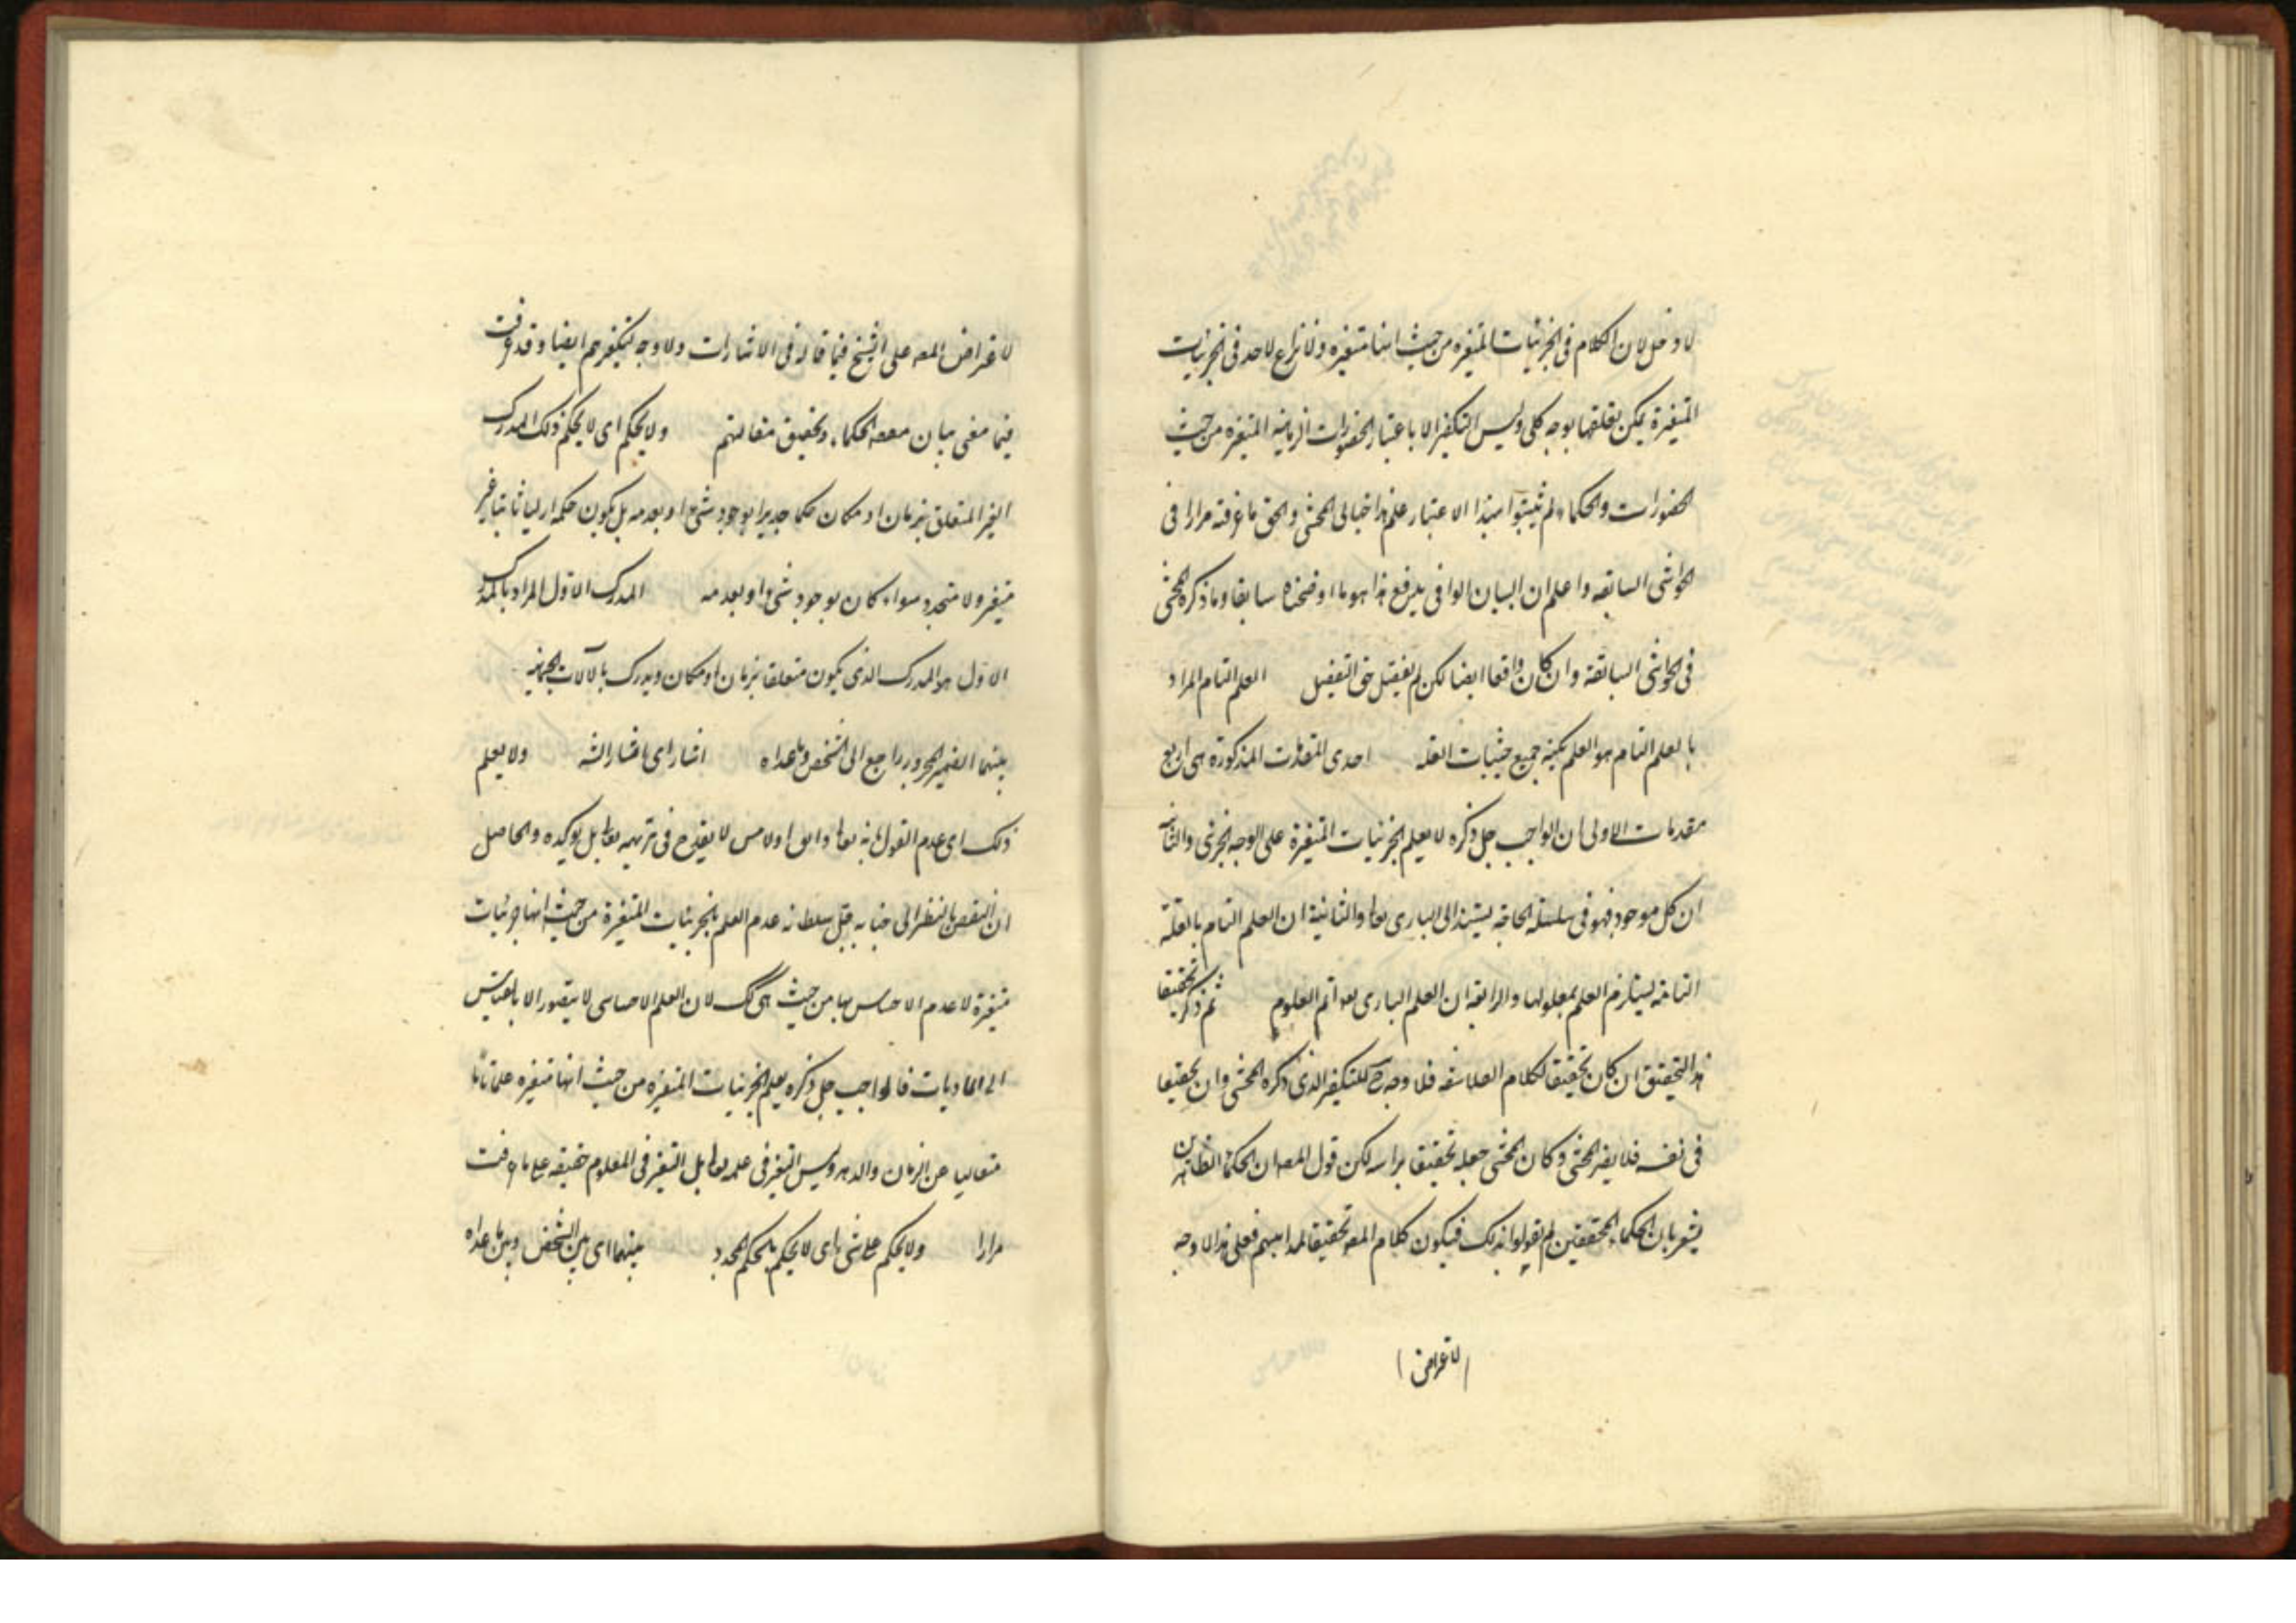 لا دخل لان الكلام فى الجزئيات المتغيره من حيث انها متغيره ولا نزاع لاحد فى الجزئيات
المتغيرة يمكن تعلقها بوجه كلى وليس التكفير الا باعتبار الحضورات الزمانيه المتغيره من حيث
الحضورات والحكماء لم يثبتوا بهذا الاعتبار علم هذا خيالى المحشى والحق ما عرفته مرارا فى
الحواشى السابقه واعلم ان البيان الوافى بدفع هذا هو ما اوضحناه سابقا وما ذكره المحشى
فى الحواشى السابقة وان كان واقعا ايضا لكن لم يفصل حق التفصيل العلم التام المراد
بالعلم التام هو العلم بكنه جميع حيثيات العله احدى المقدمات المذكورة هى اربع
مقدمات الاولى ان الواجب جل ذكره لا يعلم الجزئيات المتغيرة على الوجه الجزئى والثانى
ان كل موجود فهو فى سلسلة الحاجة يستند الى البارى تعا والثانية ان العلم التام بالعلة
التامة يستلزم العلم بمعلولها والرابعة ان العلم البارى تعه اتم العلوم ثم ذكر تحقيقا
هذا التحقيق ان كان تحقيقا لكلام الفلاسفه فلا وجه ح للتكفير الذى ذكره المحشى وان تحقيقا
فى نفسه فلا يضر المحشى وكان المحشى جعله تحقيقا براسه لكن قول المصه ان الحكماء الظاهرين
يشعر بان الحكماء المحققين لم يقولوا بذلك فيكون كلام المصه تحقيقا لمذاهبهم فعلى هذا لا وجه
لاعراض
لاعراض المصه على الشيخ فيما قاله فى الاشارات ولا وجه لتكفيرهم ايضا وقد عرفت
فيما مضى بيان الحكماء وتحقيق مقالتهم ولا يحكم اى لا يحكم ذلك المدرك
الغير المتعلق بزمان او مكان حكما جديدا بوجود شئ او بعدمه بل يكون حكمه ازليا ثابتا غير
متغير ولا متجدد سواء كان بوجود شئ او بعدمه المدرك الاول المراد بالمدرك
الاول هو المدرك الذى يكون متعلقا بزمان او مكان ويدرك بالآلات الجسمانيه
بينهما الضمير المجرور راجع الى الشخص وما عداه اشار اى ما اشار اليه ولا يعلم
ذلك اى عدم القول بانه تعا ذائق او لامس لا يقدح فى تنزيهه تعا بل يؤكده والحاصل
ان النقص بالنظر الى جنابه جل سلطانه عدم العلم بالجزئيات المتغيرة من حيث انها جزئيات
متغيرة لا عدم الاحساس بها من حيث هى كك لان العلم الاحساسى لا يتصور الا بالقياس
الى الماديات فالواجب جل ذكره يعلم الجزئيات المتغيره من حيث انها متغيره علما تاما
متعاليا عن الزمان والدهر وليس التغير فى علمه تعا بل التغير فى المعلوم حقيقه على ما عرفت
مرارا ولا يحكم على شئ اى لا يحكم بالحكم المجدد بينهما اى بين الشخص وبين ما عداه